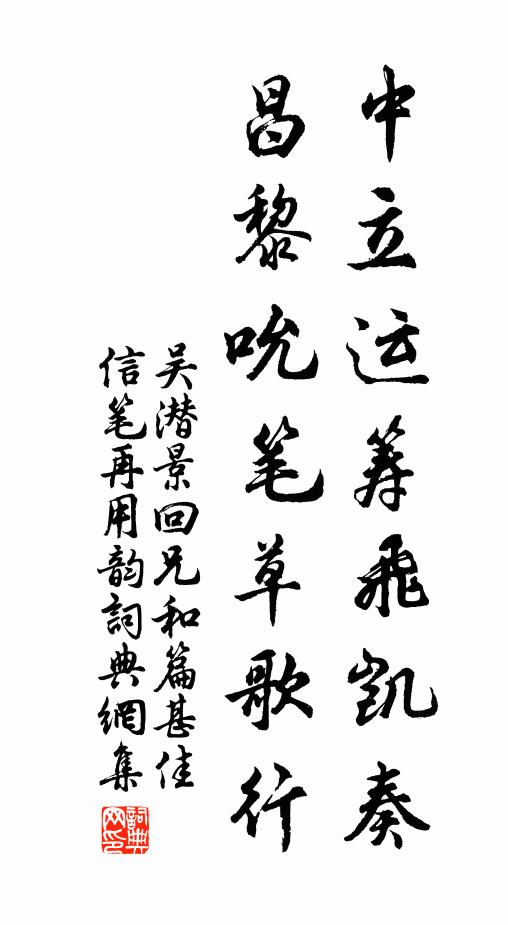 中立运筹飞凯奏
昌黎吮笔草歌行
吴潜景回兄和篇甚佳
信笔再用韵詞典網集
詞典网印